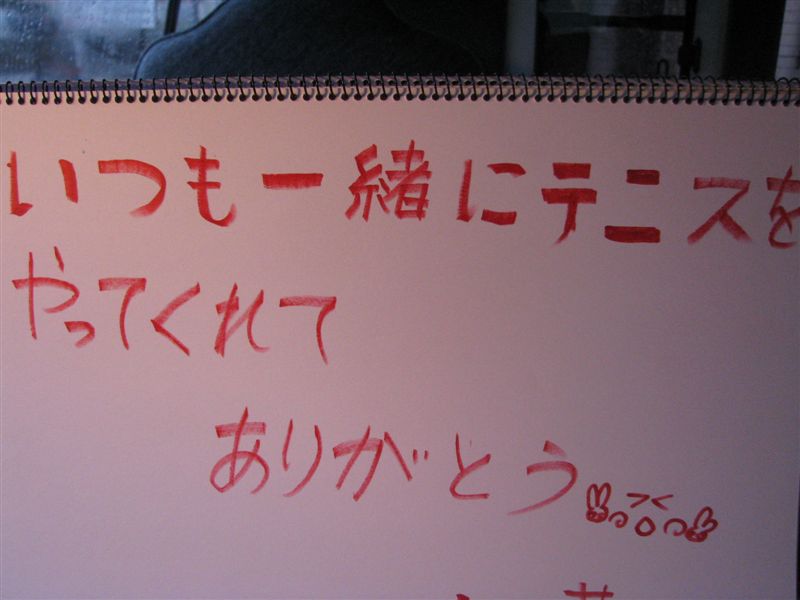 いつも一緒にテニスを
やってくれて
ありがとう